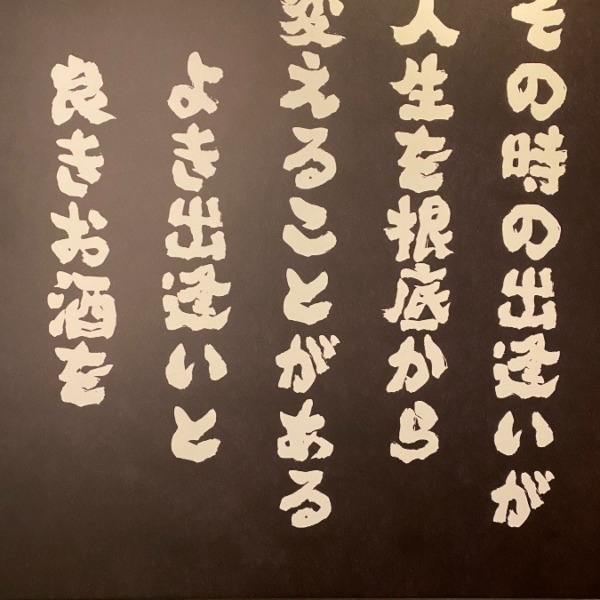 その時の出逢いが
人生を根底から
変えることがある
よき出逢いと
良きお酒を